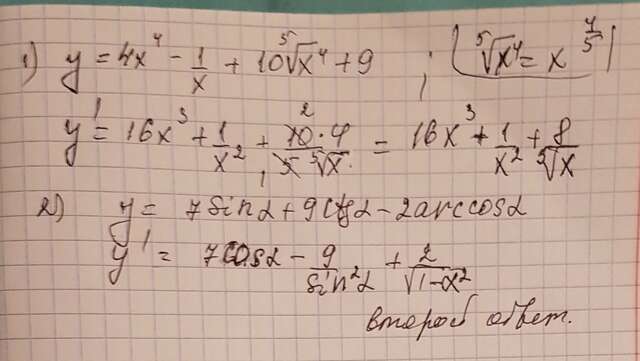 1) y = 4x⁴ - 1/x + 10⁵√x⁴ + 9 ; ⁵√x⁴ = x^(4/5)
y' = 16x³ + 1/x² + 10·4/(5 ⁵√x) = 16x³ + 1/x² + 8/⁵√x
2) y = 7sinα + 9ctgα - 2arccosα
y' = 7cosα - 9/sin²α + 2/√(1-α²)
второй ответ.